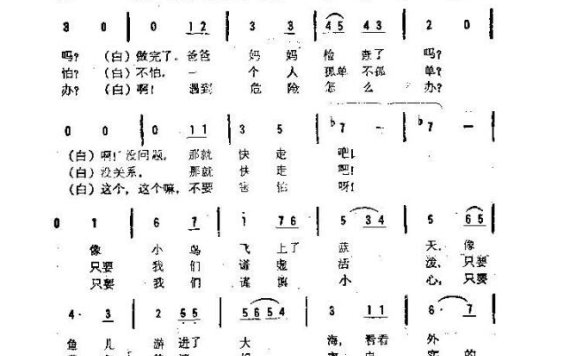 3 0 | 0 1 2 | 3 3 | 4 5 4 3 | 2 0
吗？（白）做完了，爸爸 妈 妈 检 查了 吗？
怕？（白）不怕，一 个 人 孤单 不孤 单？
办？（白）啊！遇到 危 险 怎 么 办？
0 0 | 0 1 1 | 3 5 | ♭7 — | ♭7 —
（白）啊！没问题，那就 快 走 吧！
（白）没关系，那就 快 走 吧！
（白）这个，这个嘛，不要 害 怕 呀！
0 1 | 6 7 | 1 7 6 | 5 3 4 | 5 6 5
像 小 鸟 飞 上了 蓝 天，像
只要 我 们 活 泼，只要
只要 我 们 谨 慎 小 心，只要
4· 3 | 2 5 5 | 5 6 5 4 | 3 1 1 | 6· 7
鱼 儿 游 进了 大 海，看看 外
的